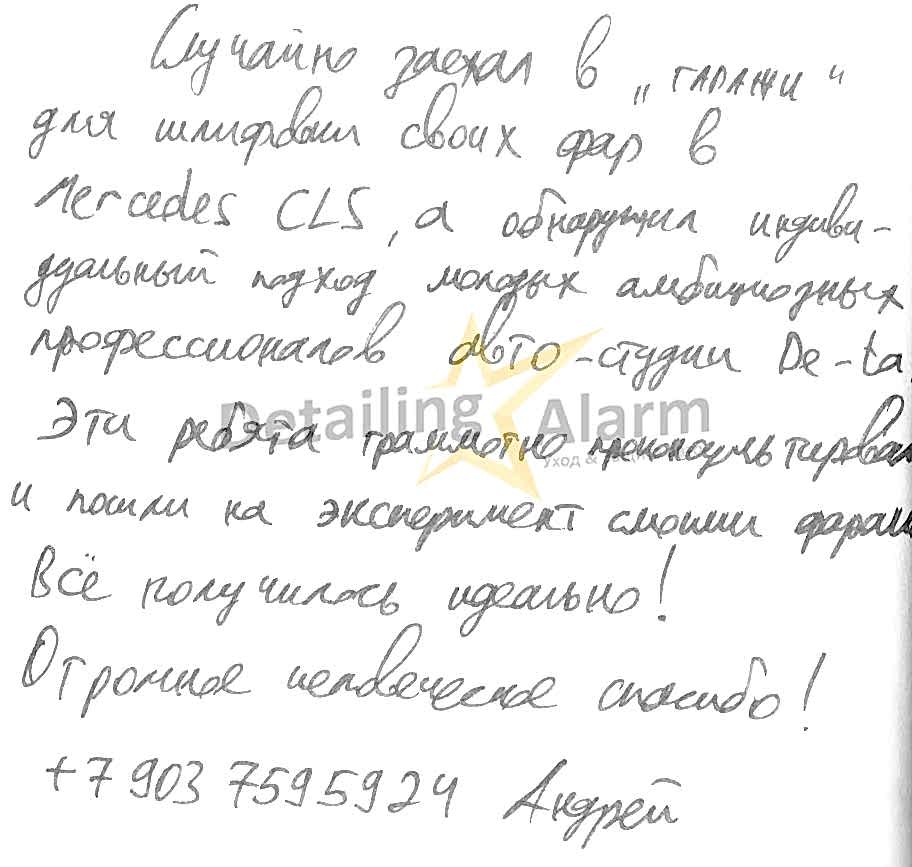 Случайно заехал в „ГАРАЖИ“
для шлифовки своих фар в
Mercedes CLS, а обнаружил индиви-
дуальный подход молодых амбициозных
профессионалов авто-студии De-ta
Detailing Alarm
Эти ребята граммотно проконсультировал
уход &
и пошли на эксперимент с моими фарами
Всё получилось идеально!
Огромное человеческое спасибо!
+7 903 7595924 Андрей